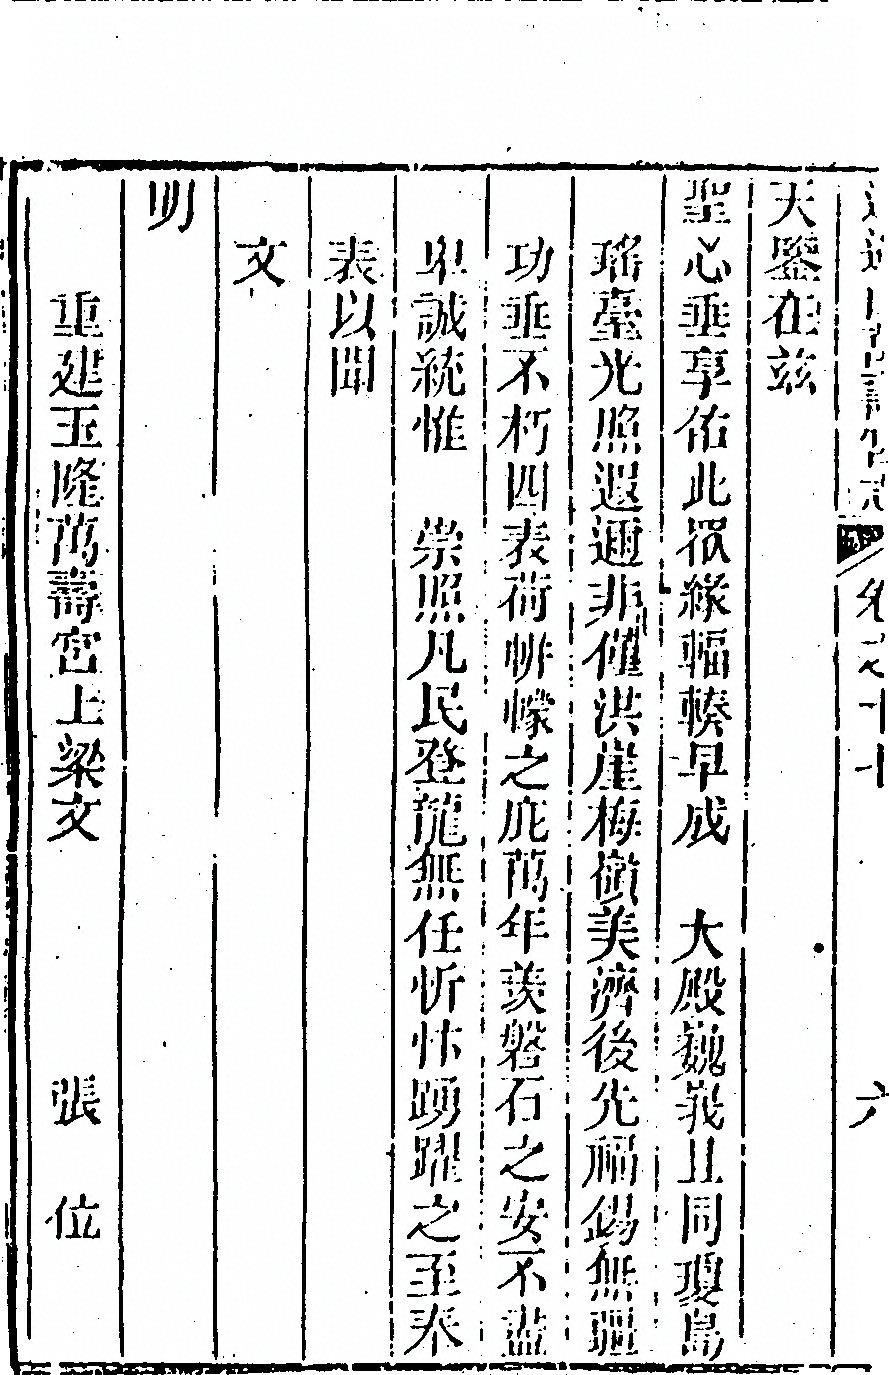 天鑒在兹
聖心垂享佑此衆緣輻輳早成　大殿巍峩且同瓊島
瑤臺光照遐邇非僅洪崖梅嶺美濟後先福錫無疆
功垂不朽四表荷帡幪之庇萬年羨磐石之安不盡
卑誠統惟　崇照凡民登龍無任忻忭踴躍之至奉
表以聞
文
明
重建玉隆萬壽宮上梁文　張　位
六